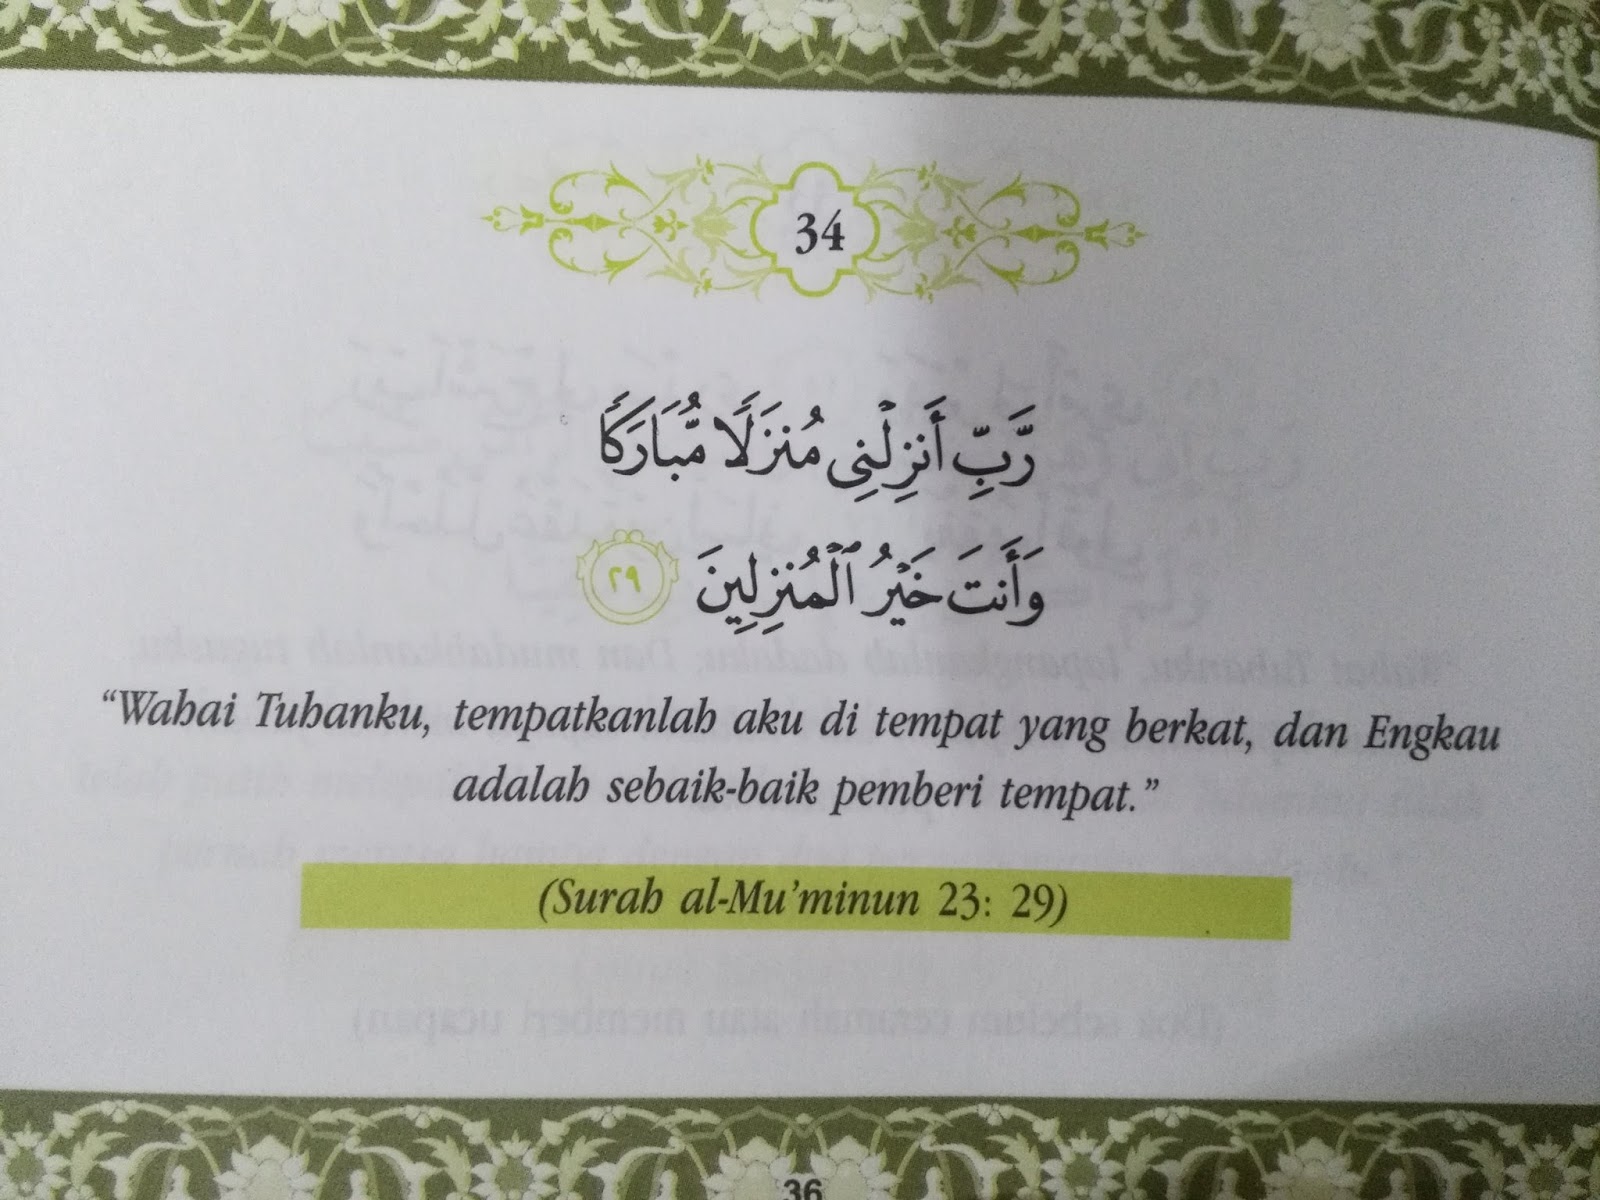 34
رَّبِّ أَنزِلْنِى مُنزَلًا مُّبَارَكًا
وَأَنتَ خَيْرُ ٱلْمُنزِلِينَ ٢٩
“Wahai Tuhanku, tempatkanlah aku di tempat yang berkat, dan Engkau
adalah sebaik-baik pemberi tempat.”
(Surah al-Mu’minun 23: 29)
36